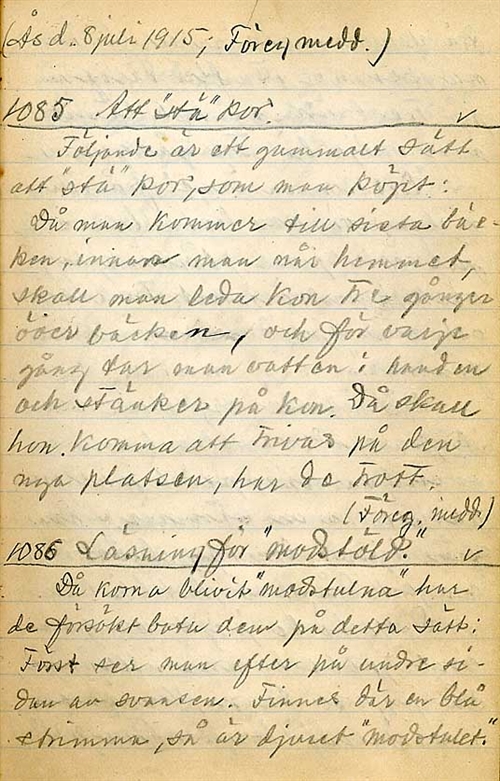 (Ås d. 8 juli 1915; Föreg medd.)
1085 Att "stä" kor. v
Följande är ett gammalt sätt
att "stä" kor, som man köpt:
Då man kommer till sista bäc-
ken, innan man når hemmet,
skall man leda kon tre gånger
över bäcken, och för varje
gång tar man vatten i handen
och stänker på kon. Då skall
hon komma att trivas på den
nya platsen, har de trott.
(Föreg. medd.)
1086 Läsning för "modstöld." v
Då korna blivit "modstulna" har
de försökt bota dem på detta sätt:
Först ser man efter på undre si-
dan av svansen. Finnes där en blå
strimma, så är djuret "modstulet."